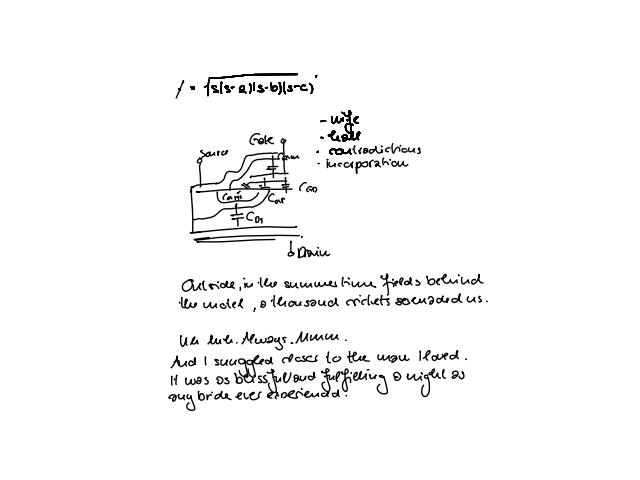 = √s(s-a)(s-b)(s-c)
- wife
·
· contradictions
· incorporation
Gate
Source
C GD
C DS
Drain
Outside, in the summertime fields behind
the motel, a thousand crickets serenaded us.
Uh huh. Always. Mmm.
And I snuggled closer to the man I loved.
It was as blissful and fulfilling a night as
any bride ever experienced.